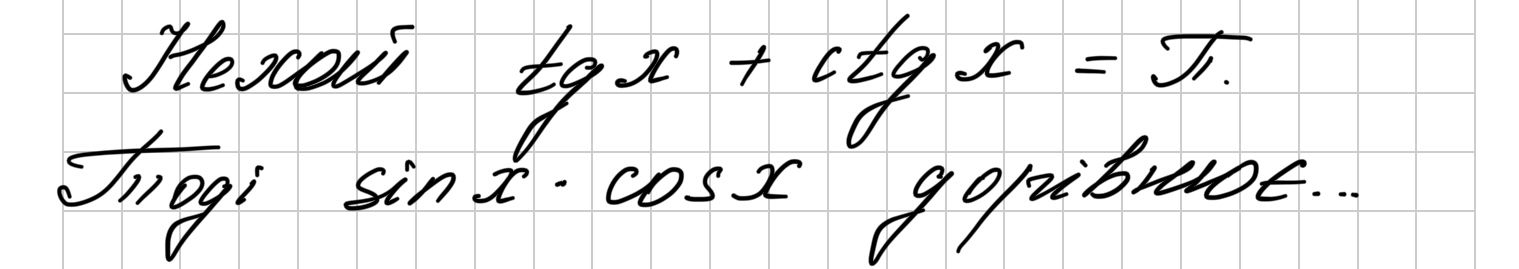 Нехай tg x + ctg x = π.
Тоді sin x · cos x дорівнює...